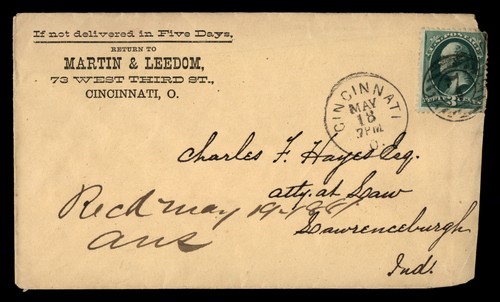 If not delivered in Five Days,
RETURN TO
MARTIN & LEEDOM,
73 WEST THIRD ST.,
CINCINNATI, O.
CINCINNATI
MAY
18
7PM
O.
U.S. POSTAGE
3
Charles F. Hayes Esq.
atty. at Law
Lawrenceburgh
Ind.
Recd may 19-1881
ans